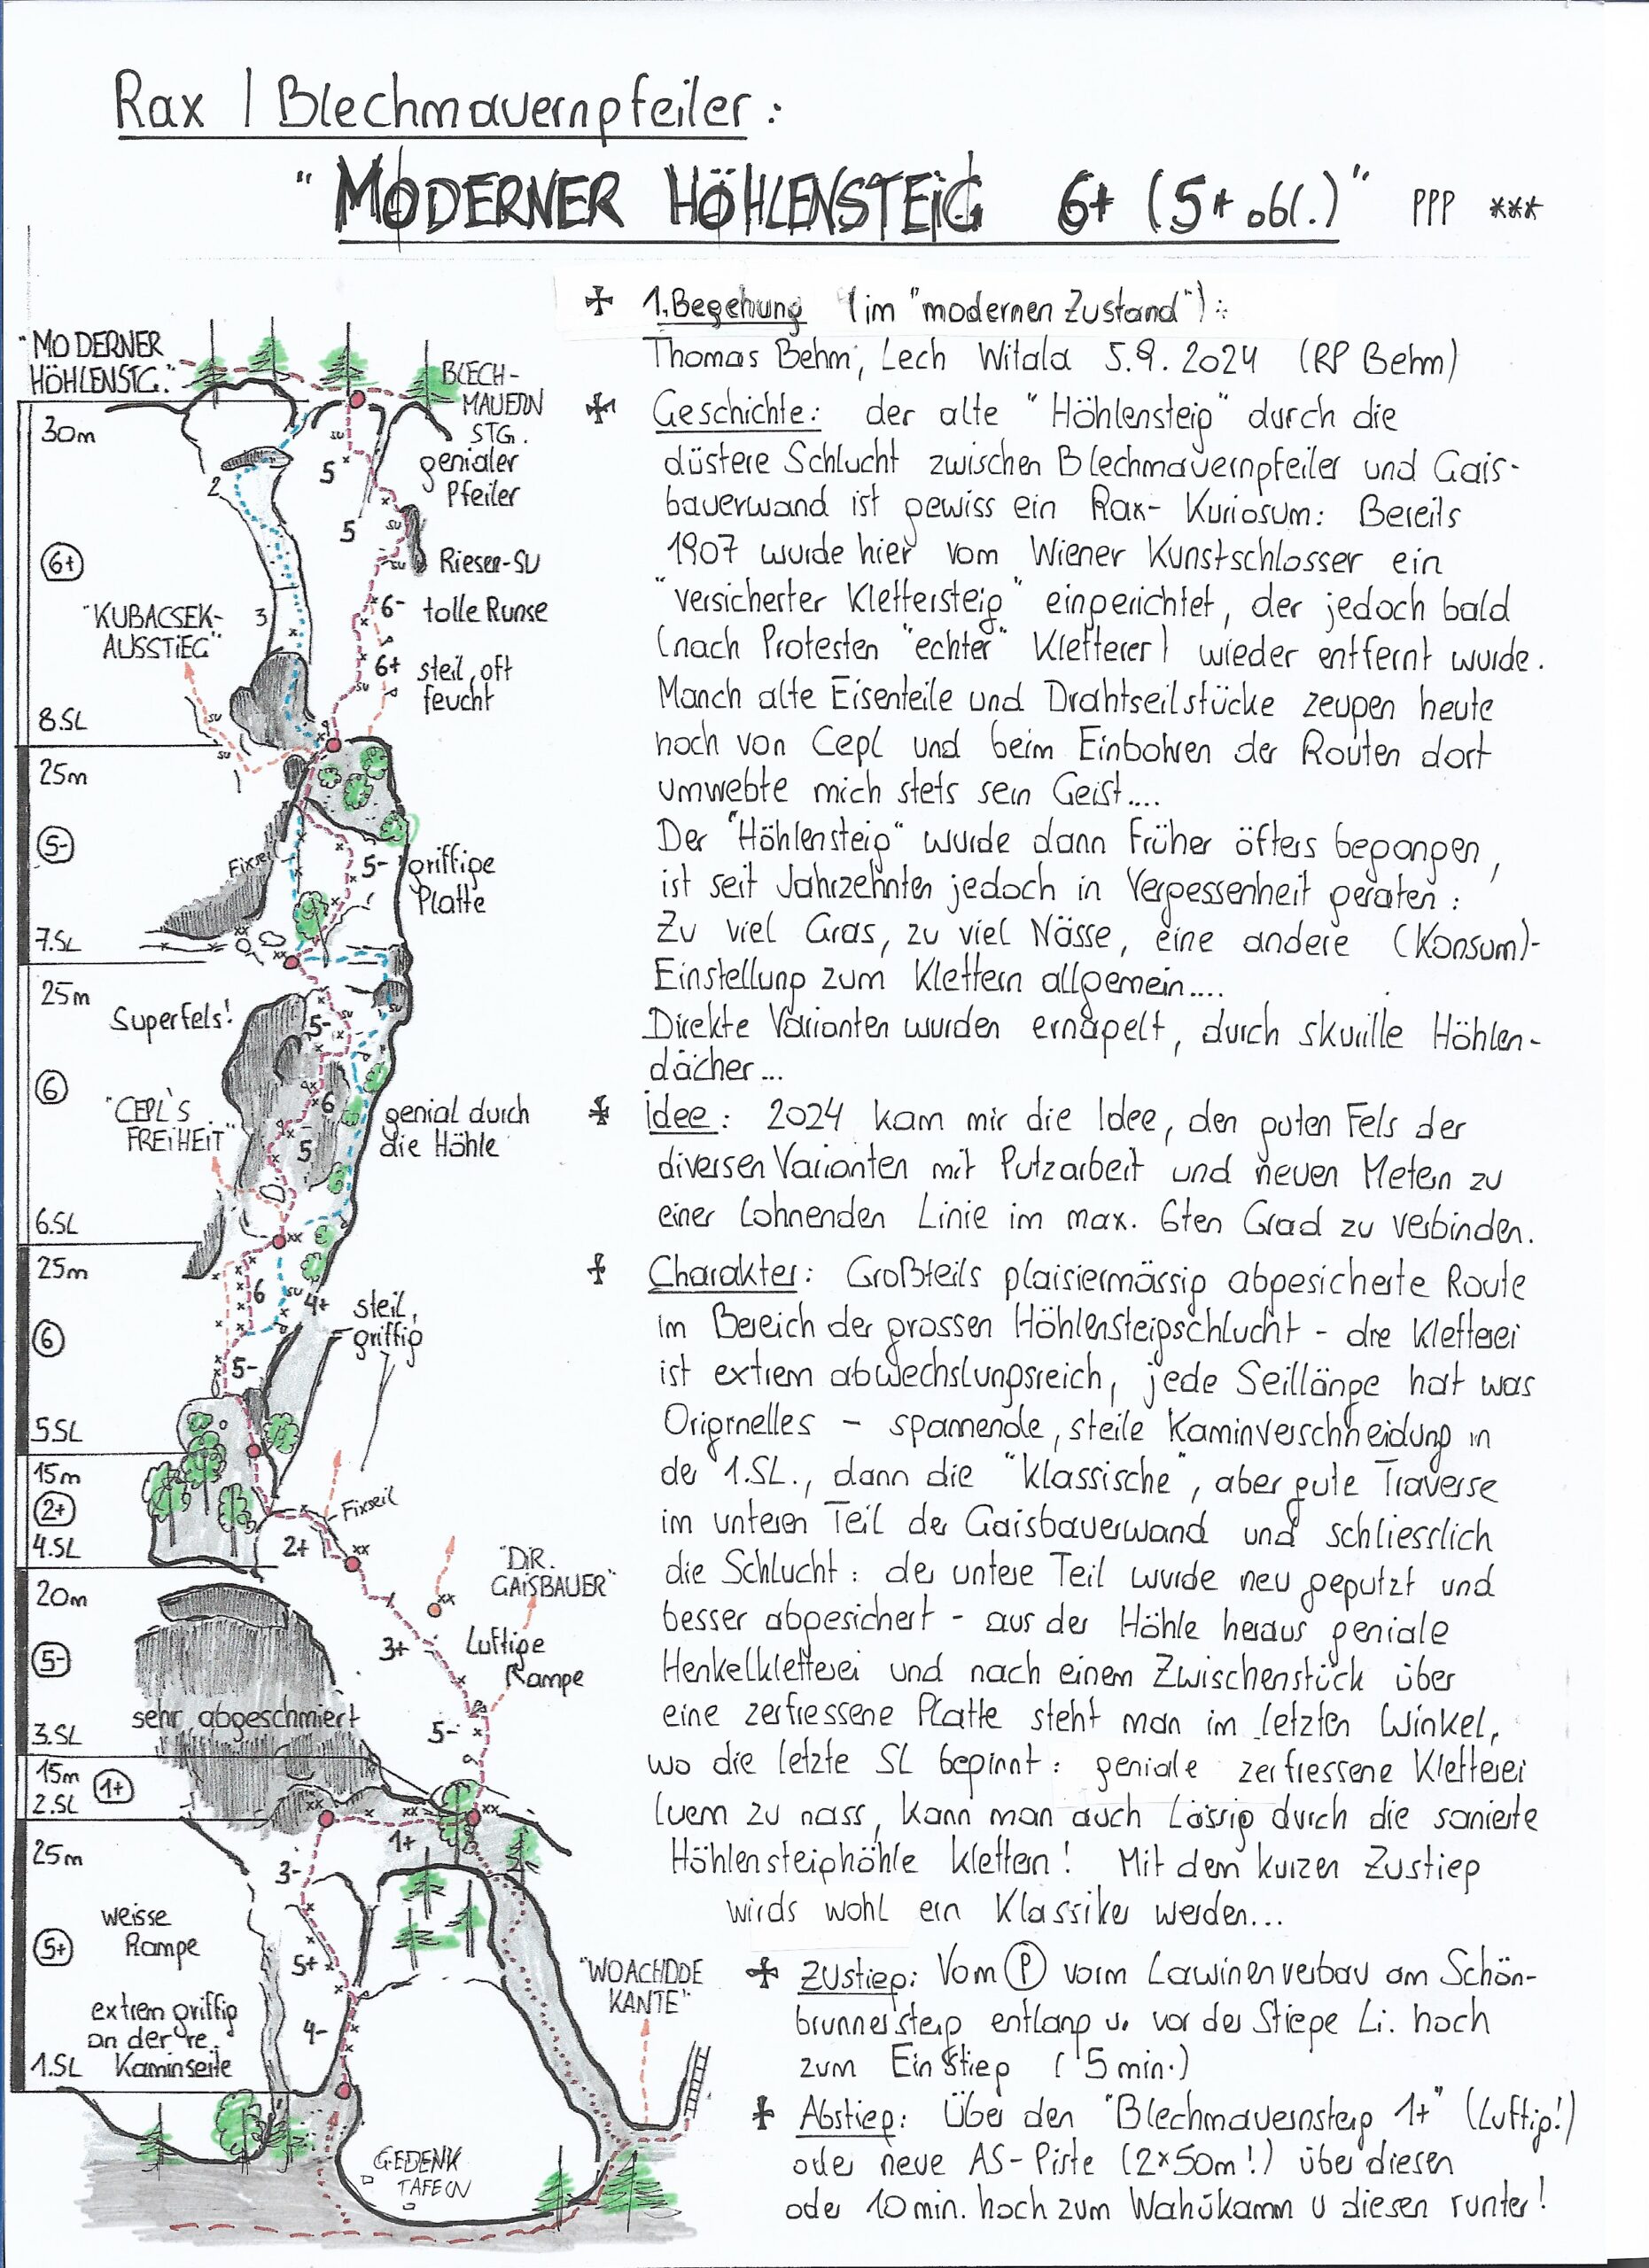 Rax | Blechmauernpfeiler:
"MODERNER HÖHLENSTEIG 6+ (5+ obl.)" PPP ***
1. Begehung (im "modernen Zustand"):
Thomas Behm, Lech Witala 5.9.2024 (RP Behm)
Geschichte: der alte "Höhlensteig" durch die
düstere Schlucht zwischen Blechmauernpfeiler und Gais-
bauerwand ist gewiss ein Rax- Kuriosum: Bereits
1907 wurde hier vom Wiener Kunstschlosser ein
"versicherter Klettersteig" eingerichtet, der jedoch bald
(nach Protesten "echter" Kletterer) wieder entfernt wurde.
Manch alte Eisenteile und Drahtseilstücke zeugen heute
noch von Cepl und beim Einbohren der Routen dort
umwebte mich stets sein Geist....
Der "Höhlensteig" wurde dann früher öfters begangen,
ist seit Jahrzehnten jedoch in Vergessenheit geraten:
Zu viel Gras, zu viel Nässe, eine andere (Konsum)-
Einstellung zum Klettern allgemein....
Direkte Varianten wurden ernagelt, durch skurille Höhlen-
dächer...
Idee: 2024 kam mir die Idee, den guten Fels der
diversen Varianten mit Putzarbeit und neuen Metern zu
einer lohnenden Linie im max. 6ten Grad zu verbinden.
Charakter: Großteils plaisiermässig abgesicherte Route
im Bereich der grossen Höhlensteigschlucht - die Kletterei
ist extrem abwechslungsreich, jede Seillänge hat was
Originelles - spannende, steile Kaminverschneidung in
der 1.SL., dann die "klassische", aber gute Traverse
im unteren Teil der Gaisbauerwand und schliesslich
die Schlucht: der untere Teil wurde neu geputzt und
besser abgesichert - aus der Höhle heraus geniale
Henkelkletterei und nach einem Zwischenstück über
eine zerfressene Platte steht man im letzten Winkel,
wo die letzte SL beginnt: geniale zerfressene Kletterei
(wem zu nass, kann man auch lässig durch die sanierte
Höhlensteighöhle klettern! Mit dem kurzen Zustieg
wirds wohl ein Klassiker werden...
Zustieg: Vom P vorm Lawinenverbau am Schön-
brunnersteig entlang u. vor der Stiege li. hoch
zum Einstieg (5 min.)
Abstieg: Über den "Blechmauernsteig 1+" (luftig!)
oder neue AS-Piste (2x50m!) über diesen
oder 10 min. hoch zum Wahükamm u diesen runter!
"MODERNER
HÖHLENSTG."
BLECH-
MAUERN
STG.
30m
su
5
genialer
Pfeiler
2
su
5
6+
su
Riesen-SU
"KUBACSEK-
AUSSTIEG"
3
6-
tolle Runse
6+
steil, oft
feucht
su
su
su
8.SL
25m
5-
Fixseil
5-
griffige
Platte
7.SL
25m
Superfels!
5-
su
su
6
6
"CEPL'S
FREIHEIT"
5
genial durch
die Höhle
6.SL
25m
6
su
4+
steil,
griffig
6
5-
5.SL
15m
2+
Fixseil
4.SL
2+
20m
"DIR.
GAISBAUER"
3+
Luftige
Rampe
5-
sehr abgeschmiert
5-
3.SL
15m
1+
2.SL
1+
25m
3-
weisse
Rampe
5+
5+
"WOACHDDE
KANTE"
extrem griffig
an der re.
Kaminseite
4-
1.SL
GEDENK
TAFELN